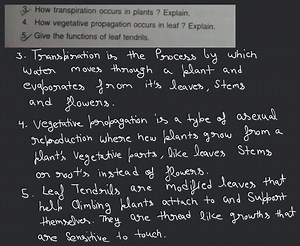 3. How transpiration occurs in plants ? Explain.
4. How vegetative propagation occurs in leaf ? Explain.
5. Give the functions of leaf tendrils.
3. Transpiration is the Process by which
water moves through a plant and
evaporates from it's leaves, Stems
and flowers.
4. Vegetative propagation is a type of asexual
reproduction where new plants grow from a
plant's Vegetative parts, like leaves Stems
or root's instead of flowers.
5. Leaf Tendrils are modified leaves that
help Climbing plants attach to and Support
themselves. They are thread like growths that
are Sensitive to touch.